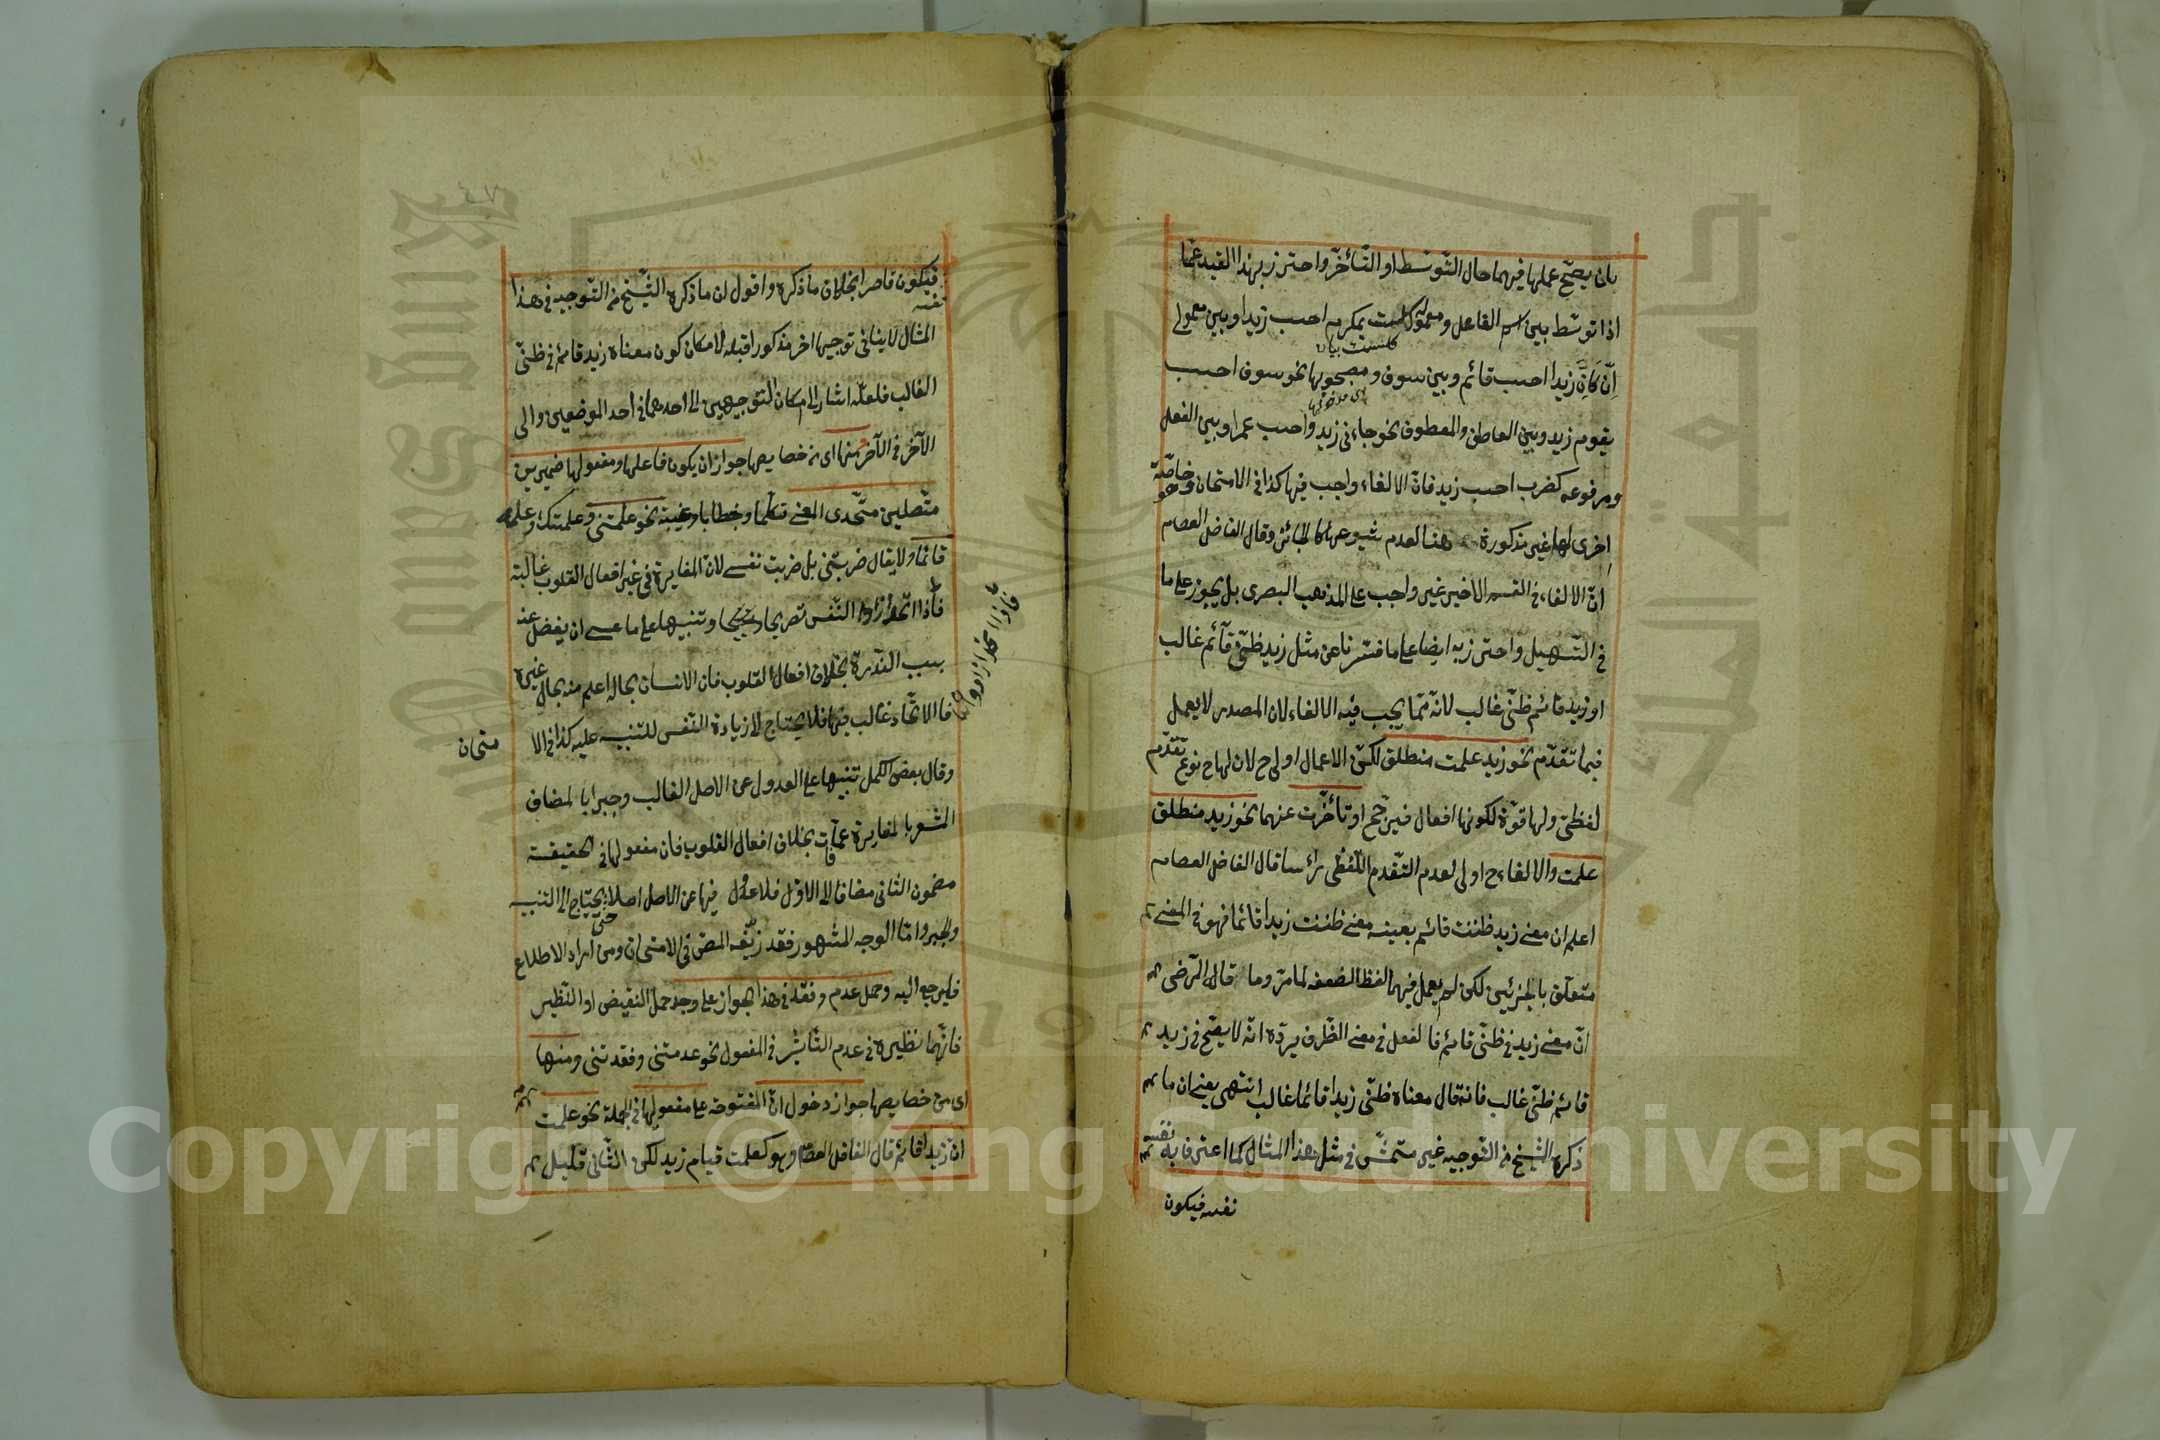 بان يصحّ عملها فيهما حال التّوسّط او التّأخّر واحترز بهذا القيد عمّا
اذا توسّط بين اسم الفاعل ومعموله كلست بمكرم احسب زيدا وبين معمولي
كلست بيان
إنّ كإنّ زيدا احسب قائم وبين سوف ومصحوبها نحو سوف احسب
اى مدخولها
يقوم زيد وبين العاطف والمعطوف نحو جاءنى زيد واحسب عمرا وبين الفعل
ومرفوعه كضرب احسب زيد فانّ الالغاء واجب فيها كذا فى الامتحان وخاصّة
اخرى لها غير مذكورة هنا لعدم شيوعها كالجائز وقال الفاضل العصام
انّ الالغاء فى القسم الاخير غير واجب على المذهب البصرى بل يجوز على ما
فى التّسهيل واحترز به ايضا على ما فسّرنا عن مثل زيد ظنّى قائم غالب
او زيد قائم ظنّى غالب لانّه ممّا يجب فيه الالغاء لان المصدر لا يعمل
فيما تقدّم نحو زيد علمت منطلق لكنّ الاعمال اولى ح لان لها ح نوع تقدّم
لفظىّ ولها قوّة لكونها افعال فيرجّح او تأخّرت عنهما نحو زيد منطلق
علمت والالغاء ح اولى لعدم التّقدم اللّفظى رأسا قال الفاضل العصام
اعلم ان معنى زيد ظننت قائم بعينه معنى ظننت زيدا قائما فهو فى المعنى
متعلّق بالجزئين لكن لم يعمل فيهما لفظا لضعفه لما مرّ وما قاله الرّضى
انّ معنى زيد فى ظنّى قائم فالفعل فى معنى الظّرف يردّه انّه لا يصحّ فى زيد
قائم ظنّى غالب فانه قال معناه ظنّى زيدا قائما غالب انتهى يعنى ان ما
ذكره الشّيخ من التّوجيه غير متمشّ فى مثل هذا المثال كما اعترف به نفسه
نفسه فيكون
فيكون قاصرا بخلاف ما ذكره واقول ان ما ذكره الشّيخ من التّوجيه فى هذا
نفسه
المثال لا ينافى توجيها اخر مذكورا قبله لامكان كون معناه زيد قائم فى ظنّى
الغالب فلعلّه اشار الى امكان التّوجيهين الى احدهما فى احد الموضعين والى
الآخر فى الآخر ومنها اى من خصايصها جواز ان يكون فاعلها ومفعولها ضميرين
متّصلين متّحدى المعنى تكلّما وخطابا وغيبة نحو علمتنى وعلمتك وعلمه
قائما ولا يقال ضربتنى بل ضربت نفسى لان المغايرة فى غير افعال القلوب غالبة
فاذا اتّحدا زادوا النّفس تصريحا وتنبيها على ما عسى ان يغفل عنه
فاذا اتّحدا زادوا
بسبب النّدرة بخلاف افعال القلوب فان الانسان بحاله اعلم منه بحال غيره
فالاتّحاد غالب فيها فلا يحتاج الى زيادة النّفس للتنبيه عليه كذا فى الا
متحان
وقال بعض الكمّل تنبيها على العدول عن الاصل الغالب وجبرا بالمضاف
المشعر بالمغايرة عمّا فات بخلاف افعال القلوب فان مفعولها فى الحقيقة
مضمون الثانى مضافا الى الاوّل فلا عدول فيها عن الاصل اصلا حتى يحتاج الى التنبيه
والجبر وامّا الوجه المشهور فقد زيّفه المص فى الامتحان ومن اراد الاطلاع
فليرجع اليه وحمل عدم وفقد فى هذا الجواز على وجد حمل النقيض او النّظير
فانّهما نظيره فى عدم التّأثير فى المفعول نحو عدمتنى وفقدتنى ومنها
اى من خصايصها جواز دخول انّ المفتوحة على مفعولها فى الجملة نحو علمت
انّ زيدا قائم قال الفاضل العصام وهو كعلمت قيام زيد لكن الثّانى قليل
Copyright © King Saud University